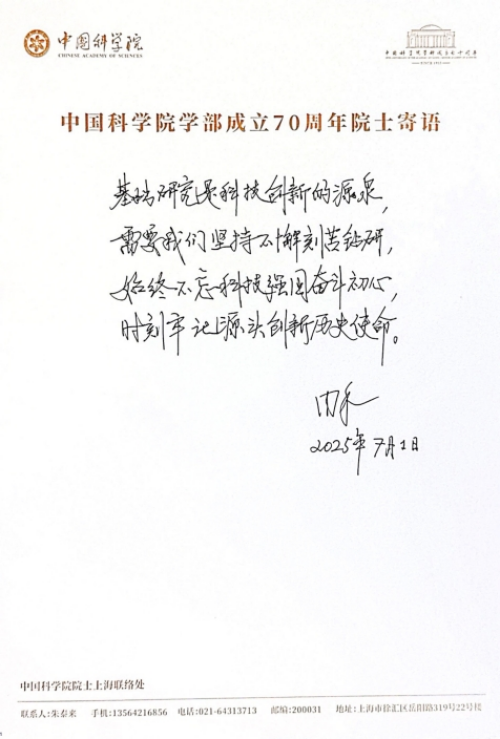 中国科学院
CHINESE ACADEMY OF SCIENCES
中国科学院学部成立70周年院士寄语
基础研究是科技创新的源泉,
需要我们坚持不懈刻苦钻研,
始终不忘科技强国奋斗初心,
时刻牢记源头创新历史使命。
2025年7月1日
中国科学院院士上海联络处
联系人:朱泰来 手机:13564216856 电话:021-64313713 邮编:200031 地址:上海市徐汇区岳阳路319号22号楼